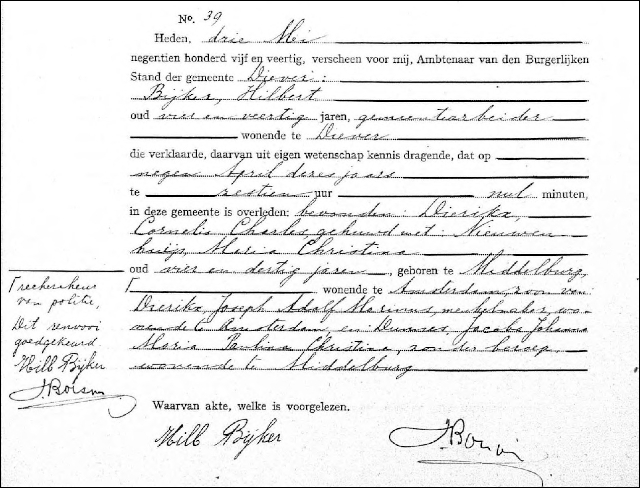 No. 39
Heden, drie Mei
negentien honderd vijf en veertig, verscheen voor mij, Ambtenaar van den Burgerlijken
Stand der gemeente Diever:
Bijker, Hilbert
oud vier en veertig jaren, gemeentearbeider
wonende te Diever
die verklaarde, daarvan uit eigen wetenschap kennis dragende, dat op
negen April dezes jaars
te zestien uur nul minuten,
in deze gemeente is overleden: bevonden: Dierikx,
Cornelis Charles, gehuwd met: Nieuwen
huijs, Maria Christina
oud vier en dertig jaren, geboren te Middelburg,
Γ wonende te Amsterdam, zoon van:
Dierikx, Joseph Adolf Marinus, meubelmaker, wo-
nende te Amsterdam, en Jacoba Johanna
Maria Paulina Christina, zonder beroep,
wonende te Middelburg
Γ rechercheur
van politie,
Dit renvooi
goedgekeurd
Hilb Bijker
Waarvan akte, welke is voorgelezen.
Hilb Bijker